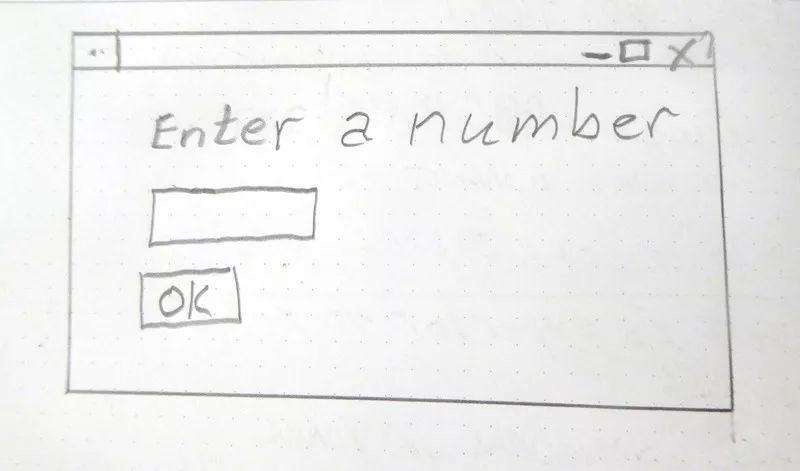 Enter a number
OK